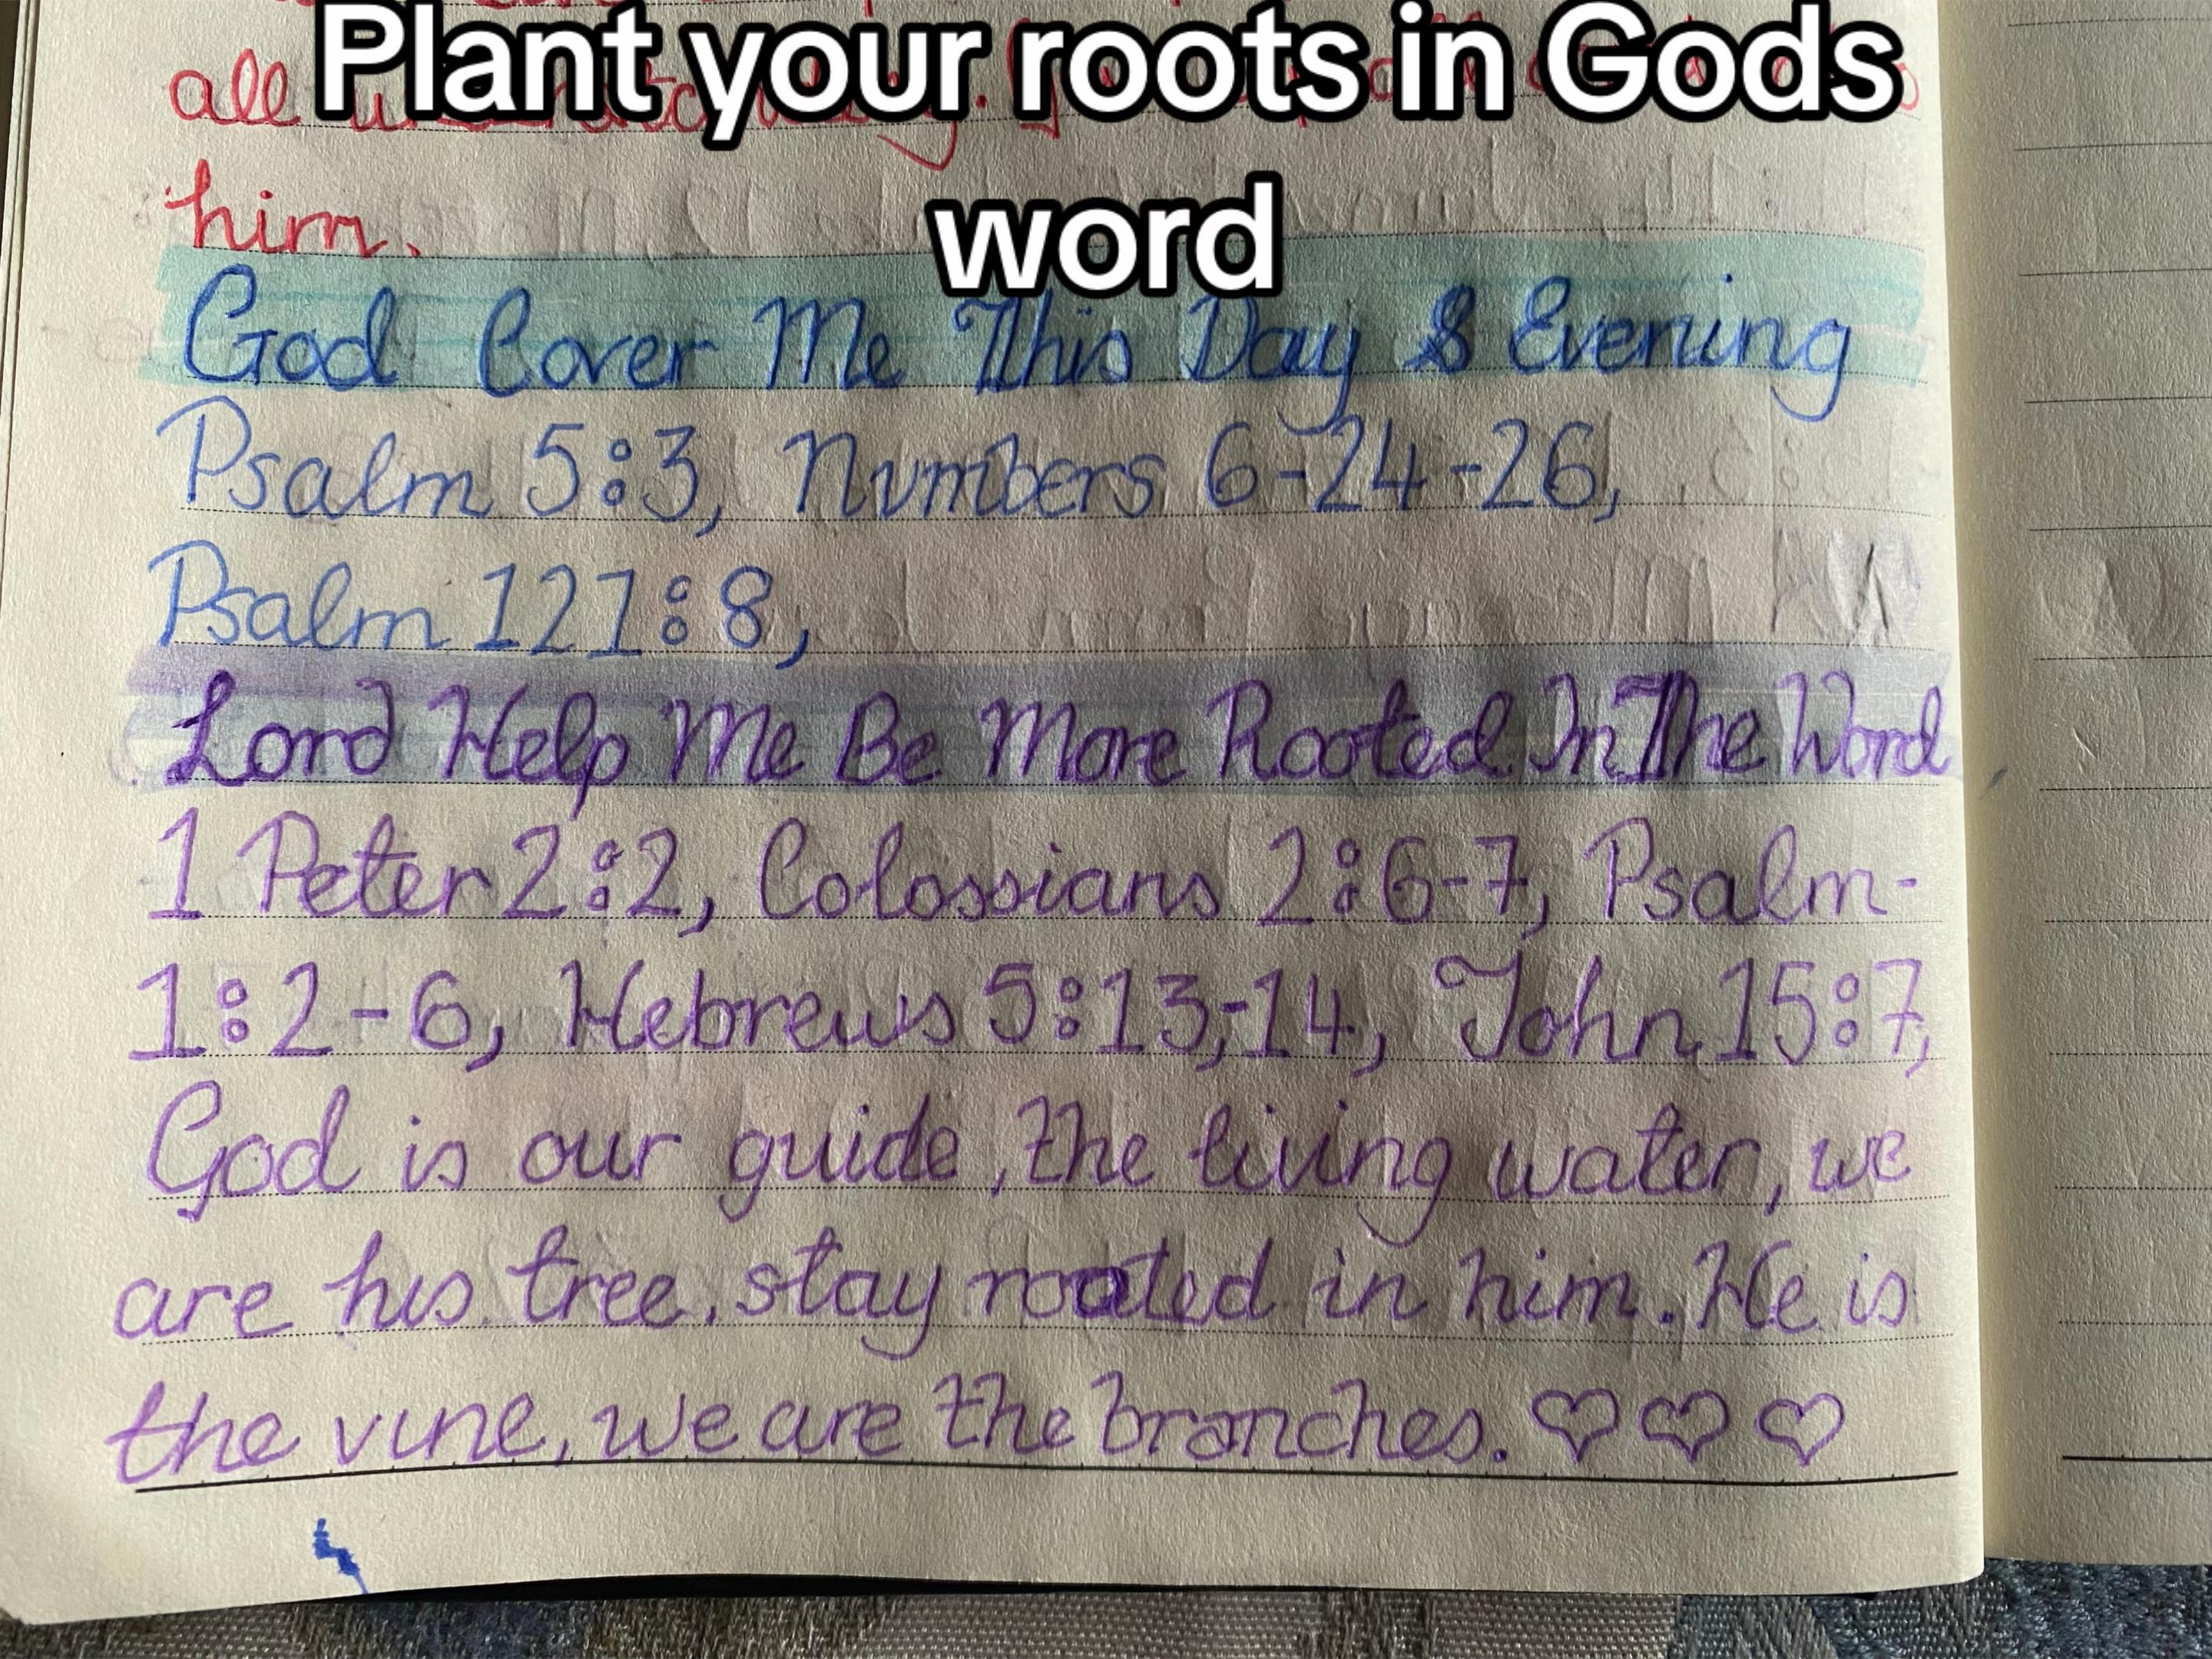 Plant your roots in Gods
word
all
him.
God Cover Me This Day & Evening
Psalm 5:3, Numbers 6-24-26,
Psalm 121:8,
Lord Help Me Be More Rooted In The Word
1 Peter 2:2, Colossians 2:6-7, Psalm-
1:2-6, Hebrews 5:13,-14, John 15:7,
God is our guide, the living water, we
are his tree, stay rooted in him. He is
the vine, we are the branches. ♡♡♡